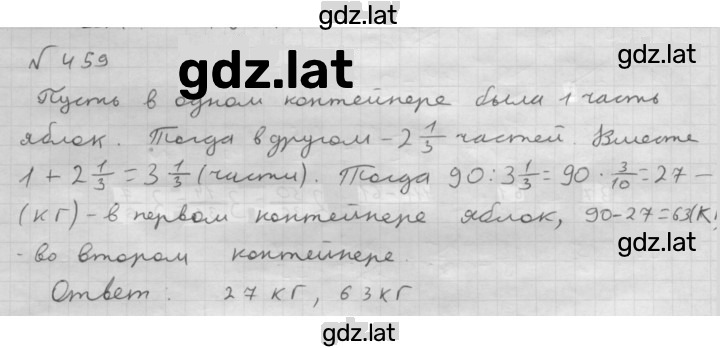 gdz.lat
gdz.lat
№ 459
gdz.lat
Пусть в одном контейнере была 1 часть
яблок. Тогда в другом – 2 1/3 частей. Вместе
1 + 2 1/3 = 3 1/3 (части). Тогда 90 : 3 1/3 = 90 · 3/10 = 27 –
(кг) – в первом контейнере яблок, 90-27=63(К
gdz.lat
- во втором контейнере.
Ответ: 27 кг, 63 кг
gdz.lat